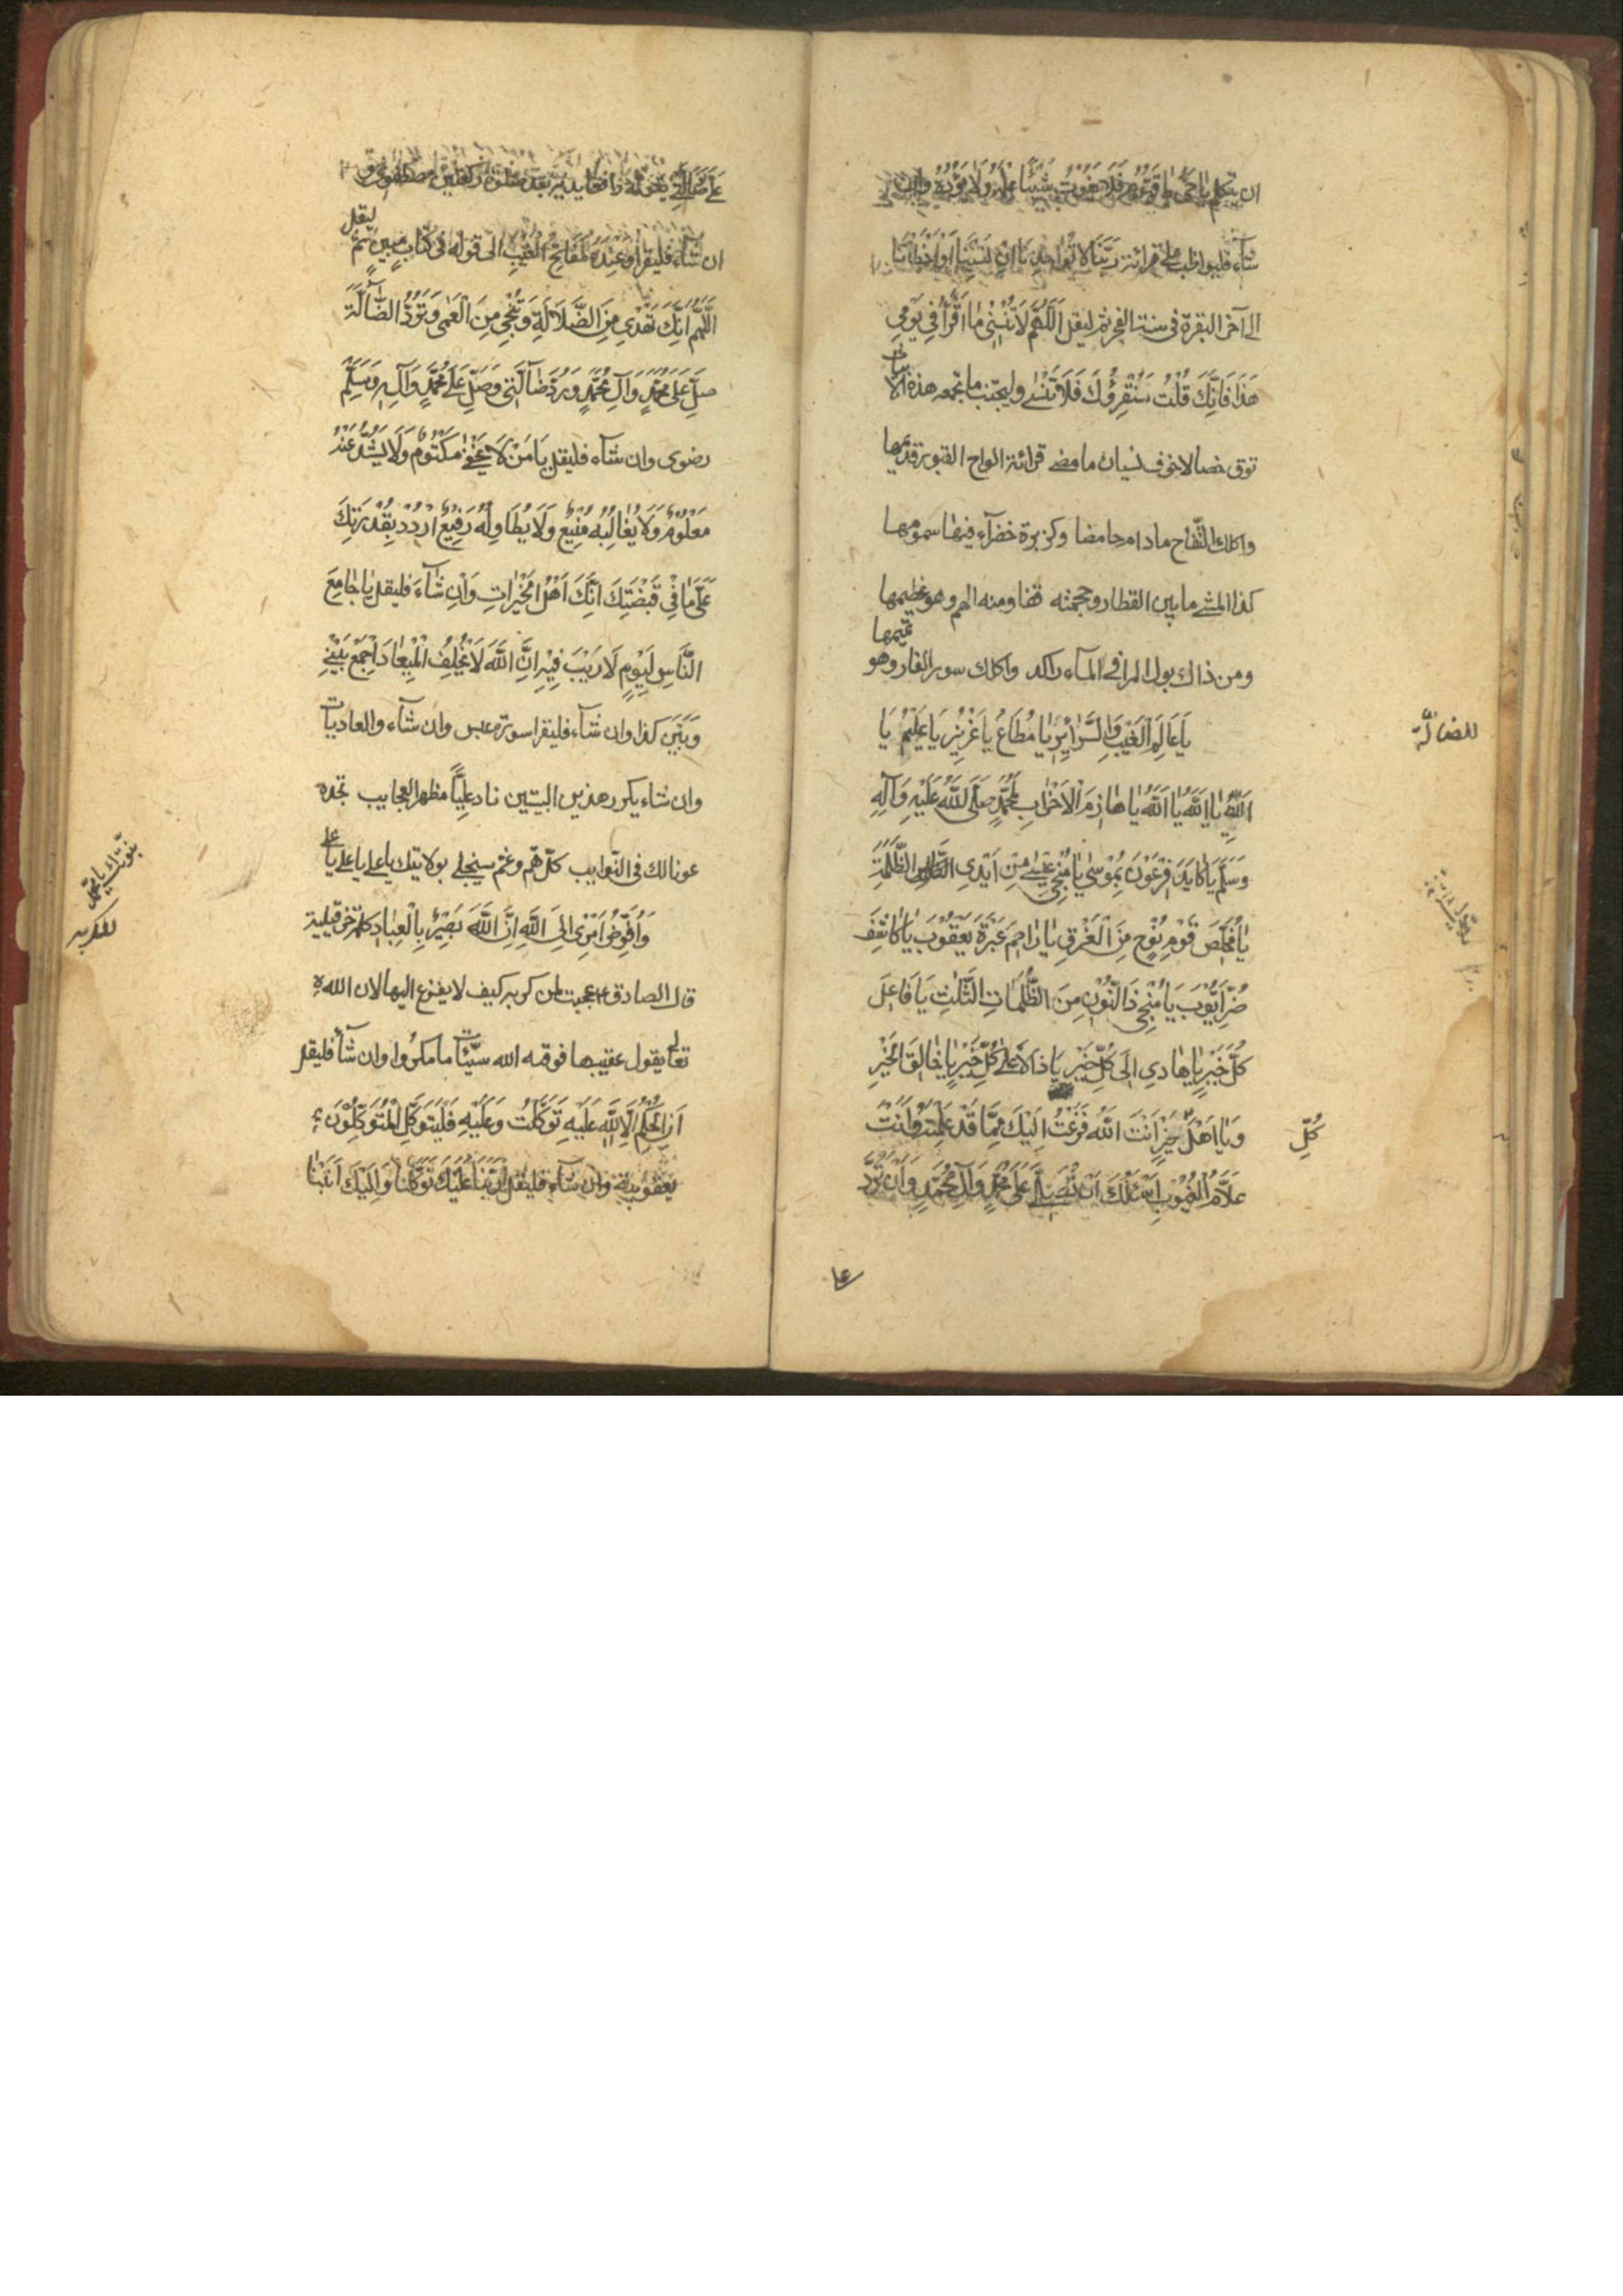 ان يتكلم يا حي يا قيوم فلا يفوت شيئا علمه ولا يؤده وان
شآء فليواظب على قرائة ربنا لا تؤاخذنا ان نسينا او اخطانا
الى آخر البقرة فى سنة الفجر ثم ليقل اَللّٰهُمَّ لَا تُنْسِنِى مَا اَقْرَأُ فِي يَوْمِي
هَذَا فَاِنَّكَ قُلْتَ سَنُقْرِؤُكَ فَلَا تَنْسٰى وليجتنب ما تجمعه هذه الابيات
توق خصالا خوف نسيان ما مضى قرائة الواح القبور تديمها
واكلك التّفاح مادام حامضا وكزبرة خضرآء فيها سمومها
كذا المشي ما بين القطار وحجمته قفا ومنه الهم وهو عظيمها
ومن ذاك بول المرا فى المآء راكد واكلك سور الفار وهو تميمها
للضالّة
يَا عَالِمَ الْغَيْبِ وَالسَّرَائِرِ يَا مُطَاعُ يَا عَزِيزُ يَا عَلِيْمُ يَا
اَللّٰهُ يَا اَللّٰهُ يَا اَللّٰهُ يَا هَازِمَ الْاَحْزَابِ لِمُحَمَّدٍ صَلَّى اللّٰهُ عَلَيْهِ وَآلِهِ
وَسَلَّمَ يَا كَايِدَ فِرْعَوْنَ بِمُوْسٰى يَا مُنْجِيَ عِيْسٰى مِنْ اَيْدِى الظَّلَمَةِ
يَا مُخَلِّصَ قَوْمِ نُوْحٍ مِنَ الْغَرَقِ يَا رَاحِمَ عَبْرَةِ يَعْقُوْبَ يَا كَاشِفَ
ضُرِّ اَيُّوْبَ يَا مُنْجِيَ ذَا النُّوْنِ مِنَ الظُّلُمَاتِ الثَّلٰثِ يَا فَاعِلَ
كُلِّ خَيْرٍ يَا هَادِيَ اِلَى كُلِّ خَيْرٍ يَا دَالًّا عَلٰى كُلِّ خَيْرٍ يَا خَالِقَ الْخَيْرِ
وَيَا اَهْلَ خَيْرٍ اَنْتَ اللّٰهُ فَزِعْتُ اِلَيْكَ مِمَّا قَدْ عَلِمْتَ وَاَنْتَ
كُلِّ
عَلَّامُ الْغُيُوْبِ اَسْئَلُكَ اَنْ تُصَلِّيَ عَلٰى مُحَمَّدٍ وَآلِ مُحَمَّدٍ وَاَنْ تَرُدَّ
على
عَلَيَّ ضَالَّتِي بعد صلوة ركعتين
ان شآء فليقرا وَعِنْدَهُ مَفَاتِحُ الْغَيْبِ الى قوله فى كتاب مبين ثم ليقل
اَللّٰهُمَّ اِنَّكَ تَهْدِي مِنَ الضَّلَالَةِ وَتُنْجِي مِنَ الْعَمٰى وَتَرُدُّ الضَّالَّةَ
صَلِّ عَلٰى مُحَمَّدٍ وَآلِ مُحَمَّدٍ وَرُدَّ ضَالَّتِي وَصَلِّ عَلٰى مُحَمَّدٍ وَآلِهِ وَسَلِّمْ
رضوى وان شآء فليقل يَا مَنْ لَا يَخْفٰى مَكْتُوْمٌ وَلَا يَشُذُّ عَنْهُ
مَعْلُوْمٌ وَلَا يُغَالِبُهُ مَنِيْعٌ وَلَا يُطَاوِلُهُ رَفِيْعٌ اُرْدُدْ بِقُدْرَتِكَ
عَلَيَّ مَا فِي قَبْضَتِكَ اِنَّكَ اَهْلُ الْخَيْرَاتِ وَاِنْ شَآءَ فليقل يَا جَامِعَ
النَّاسِ لِيَوْمٍ لَا رَيْبَ فِيْهِ اِنَّ اللّٰهَ لَا يُخْلِفُ الْمِيْعَادَ اِجْمَعْ بَيْنِي
وَبَيْنَ كذا وان شآء فليقرا سورة عبس وان شآء والعاديات
وان شاء يكرر هذين البيتين ناد عليّا مظهر العجايب تجده
عونا لك فى النّوايب كلّ همّ وغمّ سينجلى بولايتك يا على يا على يا على
بنوّتك يا محمّد
للكربة
وَاُفَوِّضُ اَمْرِى اِلَى اللّٰهِ اِنَّ اللّٰهَ بَصِيْرٌ بِالْعِبَادِ كلمة حزقيلية
قال الصادق ع عجبت لمن كرب كيف لا يفزع اليها لان الله
تعالى يقول عقيبها فوقه الله سيّئات ما مكروا وان شآء فليقل
اِنِ الْحُكْمُ اِلَّا لِلّٰهِ عَلَيْهِ تَوَكَّلْتُ وَعَلَيْهِ فَلْيَتَوَكَّلِ الْمُتَوَكِّلُوْنَ
يعقوبية وان شآء فليقل رَبَّنَا عَلَيْكَ تَوَكَّلْنَا وَاِلَيْكَ اَنَبْنَا